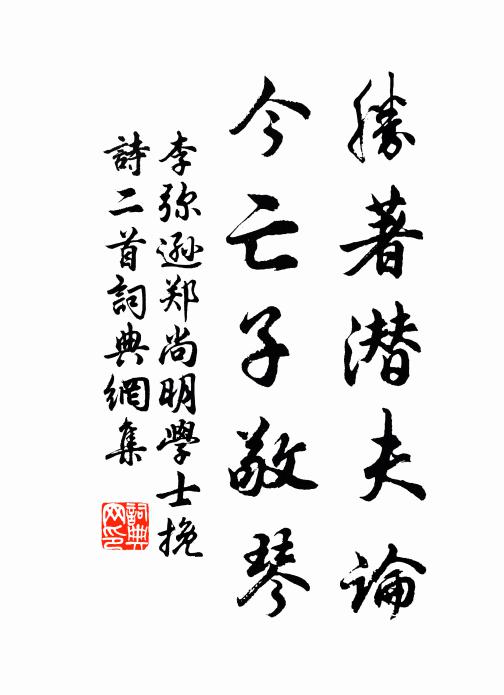 勝著潜夫論
今亡子敬琴
李弥遜郑尚明學士挽
詩二首詞典網集
詞典
网印